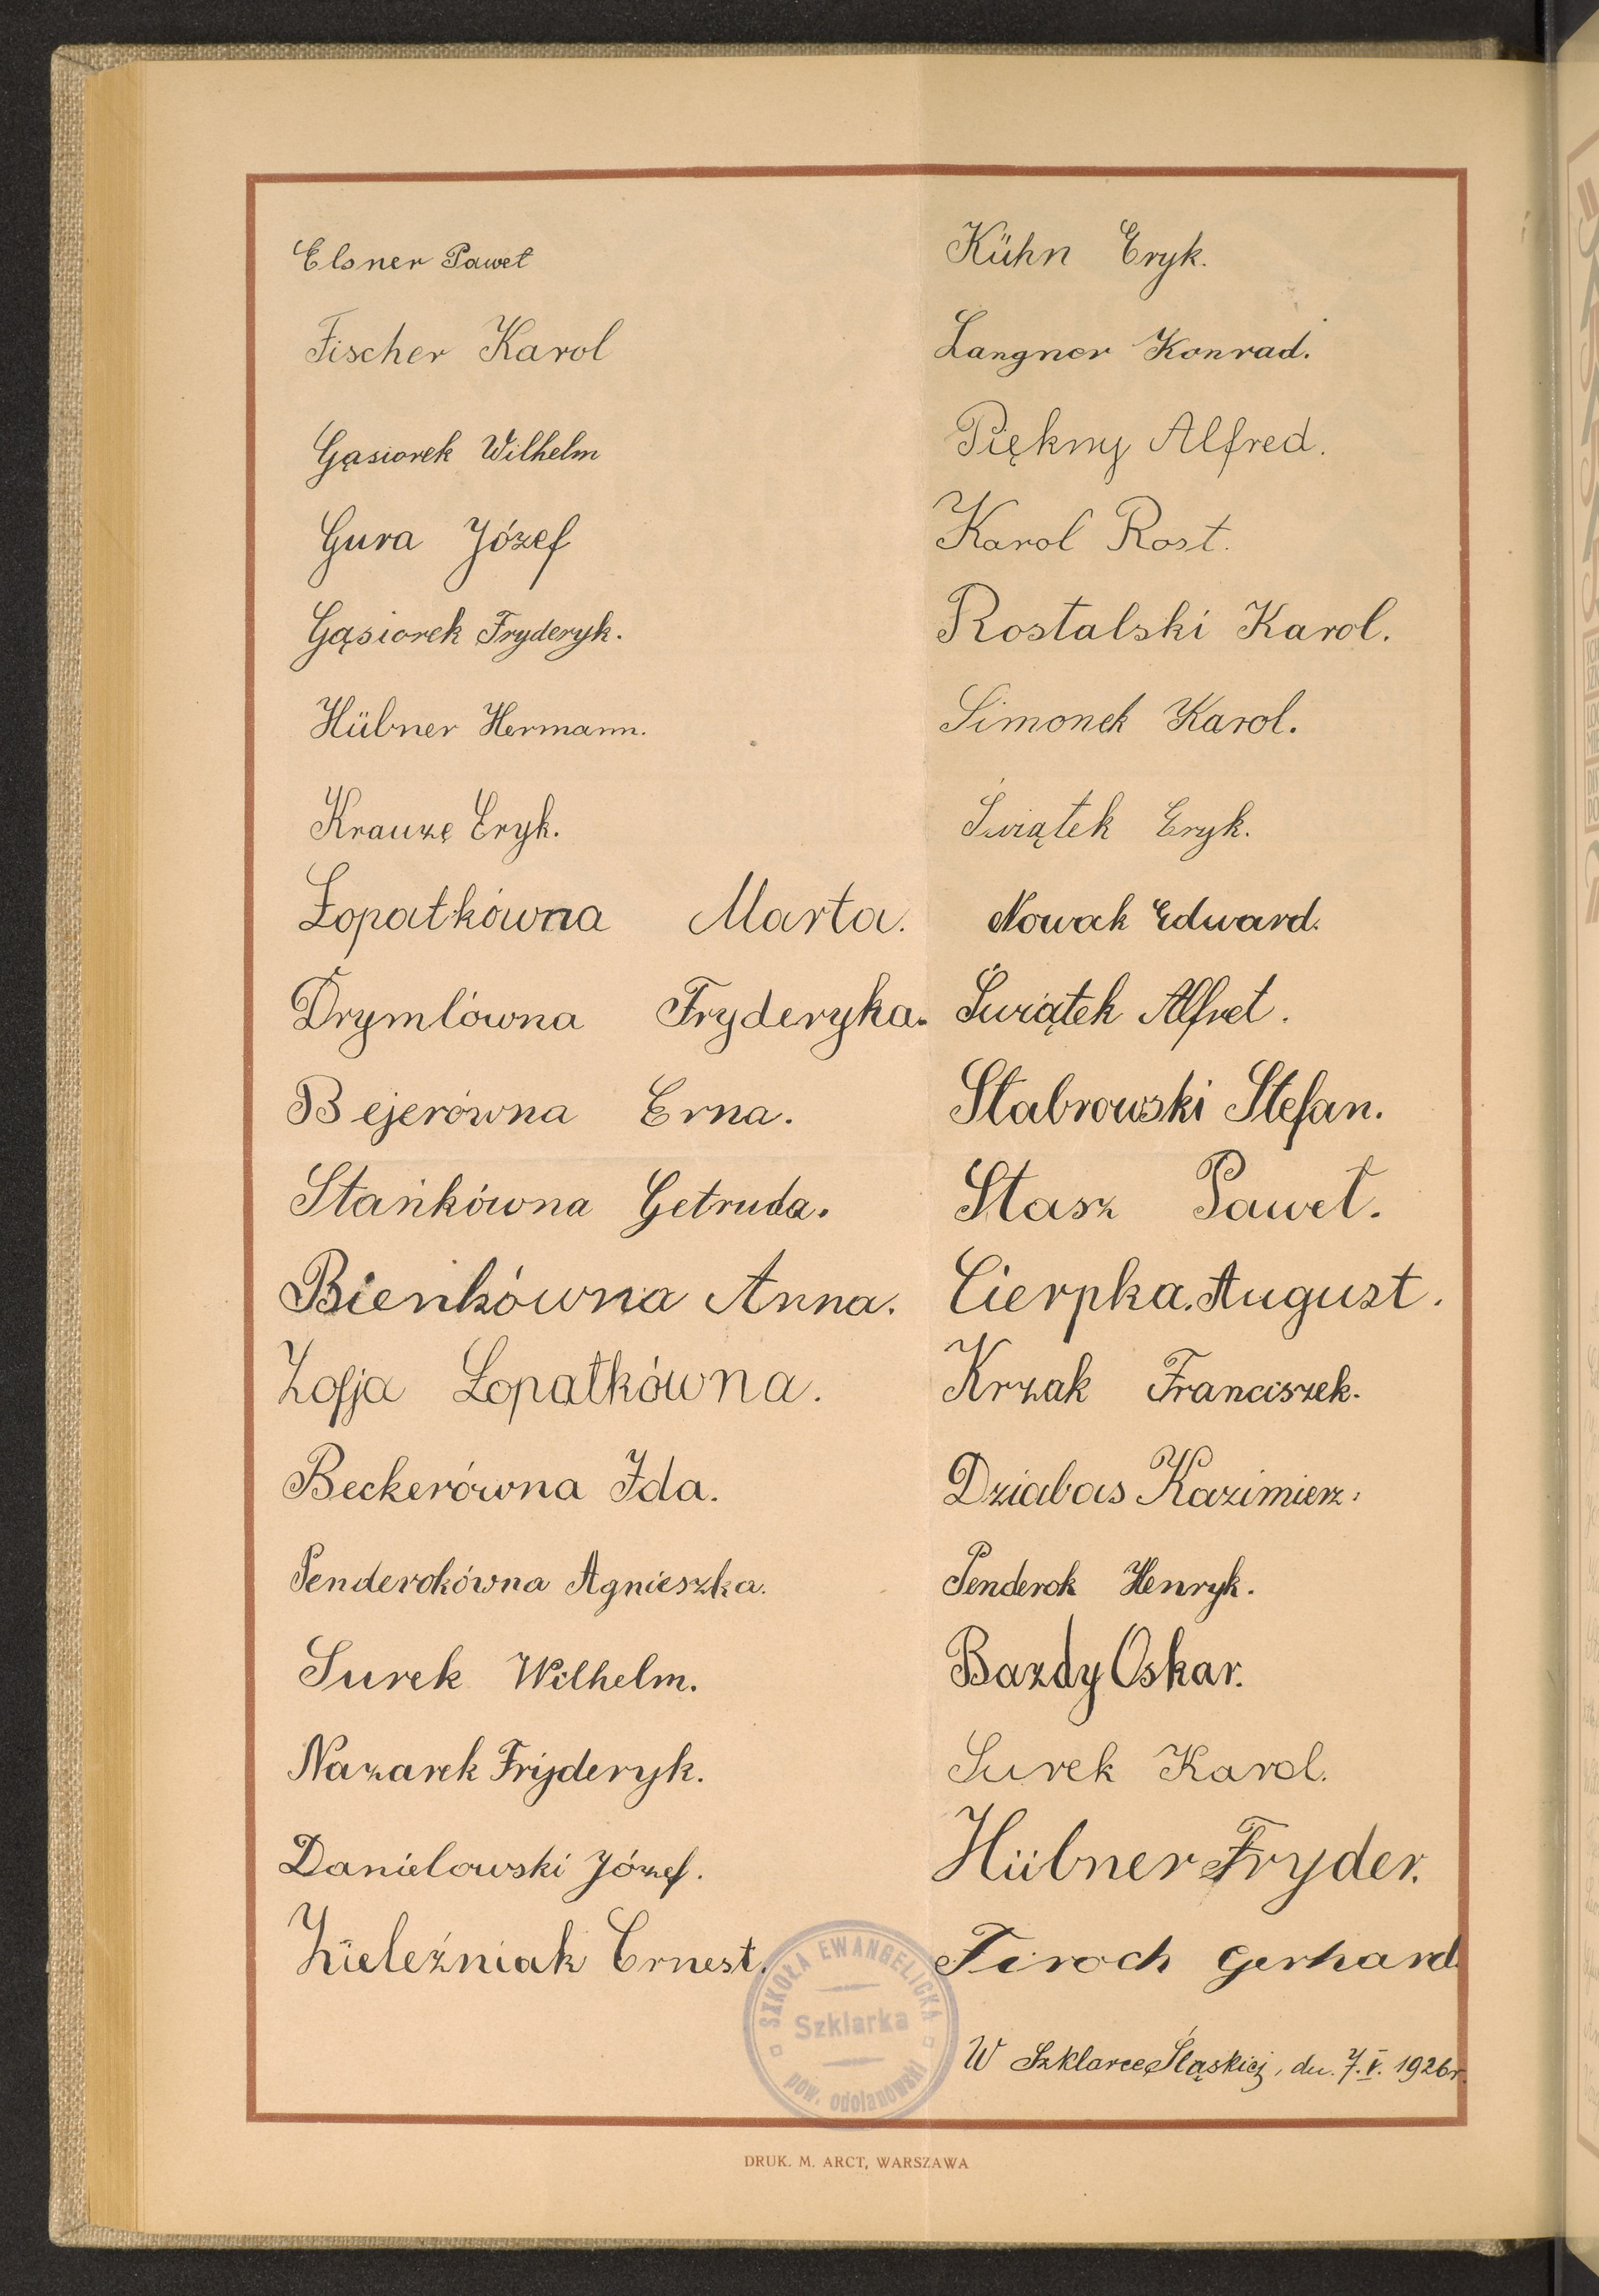 Elsner Paweł
Fischer Karol
Gąsiorek Wilhelm
Gura Józef
Gąsiorek Fryderyk.
Hübner Hermann.
Krauzę Eryk.
Łopatkówna Marta.
Drymlówna Fryderyka.
Bejerówna Erna.
Stańkówna Getruda.
Bieńkówna Anna.
Zofja Łopatkówna.
Beckerówna Ida.
Penderokówna Agnieszka.
Surek Wilhelm.
Nazarek Fryderyk.
Danielowski Józef.
Zieleźniak Ernest.
Kühn Eryk.
Langner Konrad.
Piękny Alfred.
Karol Rost.
Rostalski Karol.
Simonek Karol.
Świątek Eryk.
Nowak Edward.
Świątek Alfret.
Stabrowski Stefan.
Stasz Paweł.
Cierpka. August.
Krzak Franciszek.
Dziabas Kazimierz.
Penderok Henryk.
Bazdy Oskar.
Surek Karol.
Hübner Fryder.
Tiroch Gerhard.
SZKOŁA EWANGELICKA
Szklarka
pow. odolanowski
W Szklarce Śląskiej, dn. 7. V. 1926 r.
DRUK. M. ARCT, WARSZAWA